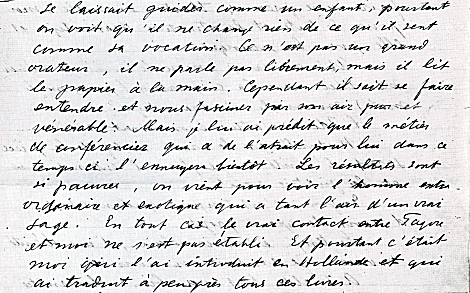 se laissait guider comme un enfant, pourtant
on voit qu'il ne change rien de ce qu'il sent
comme sa vocation. Ce n'est pas un grand
orateur, il ne parle pas librement, mais il lit
le papier à la main. Cependant il sait se faire
entendre et nous fasciner par son air pur et
vénérable. Mais je lui ai prédit que le métier
de conférencier qui a de l'attrait pour lui dans ce
temps ci l'ennuyera bientôt. Les résultats sont
si pauvres, on vient pour voir l'homme extra-
ordinaire et exotique qui a tant l'air d'un vrai
sage. En tout cas le vrai contact entre Tagore
et moi ne s'est pas établi. Et pourtant c'était
moi qui l'ai introduit en Hollande et qui
ai traduit à peu près tous ces livres.